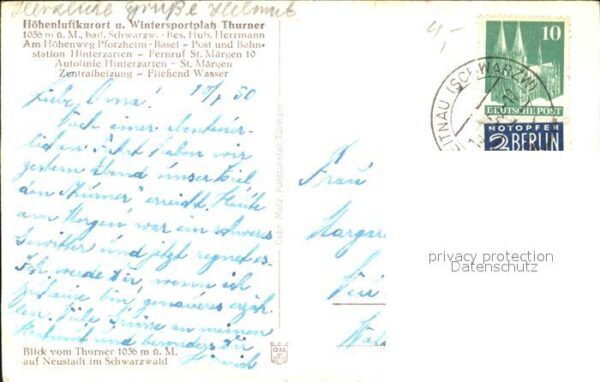 Herzliche Grüße Helmut
Höhenluftkurort u. Wintersportplatz Thurner
1036 m ü. M., bad. Schwarzw. - Bes. Hub. Herrmann
Am Höhenweg Pforzheim - Basel - Post und Bahn-
station Hinterzarten - Fernruf St. Märgen 10
Autolinie Hinterzarten - St. Märgen
Zentralheizung - Fließend Wasser
50
Liebe Oma!
Nach einer abenteuer-
lichen Fahrt haben wir
gestern Abend unser Ziel
den "Thurner" erreicht. Heute
am Morgen war ein schweres
Gewitter und jetzt regnet es.
Ich werde Dir, wenn ich
zuhause bin, genaueres erzäh-
len. Viele Grüße an meinen
und besonders Dir
Blick vom Thurner 1036 m ü. M.
auf Neustadt im Schwarzwald
Gebr. Metz, Kunstanstalt, Tübingen
10
DEUTSCHE POST
NOTOPFER
2 BERLIN
(SCHWARZW)
Frau
Margar
privacy protection
Datenschutz